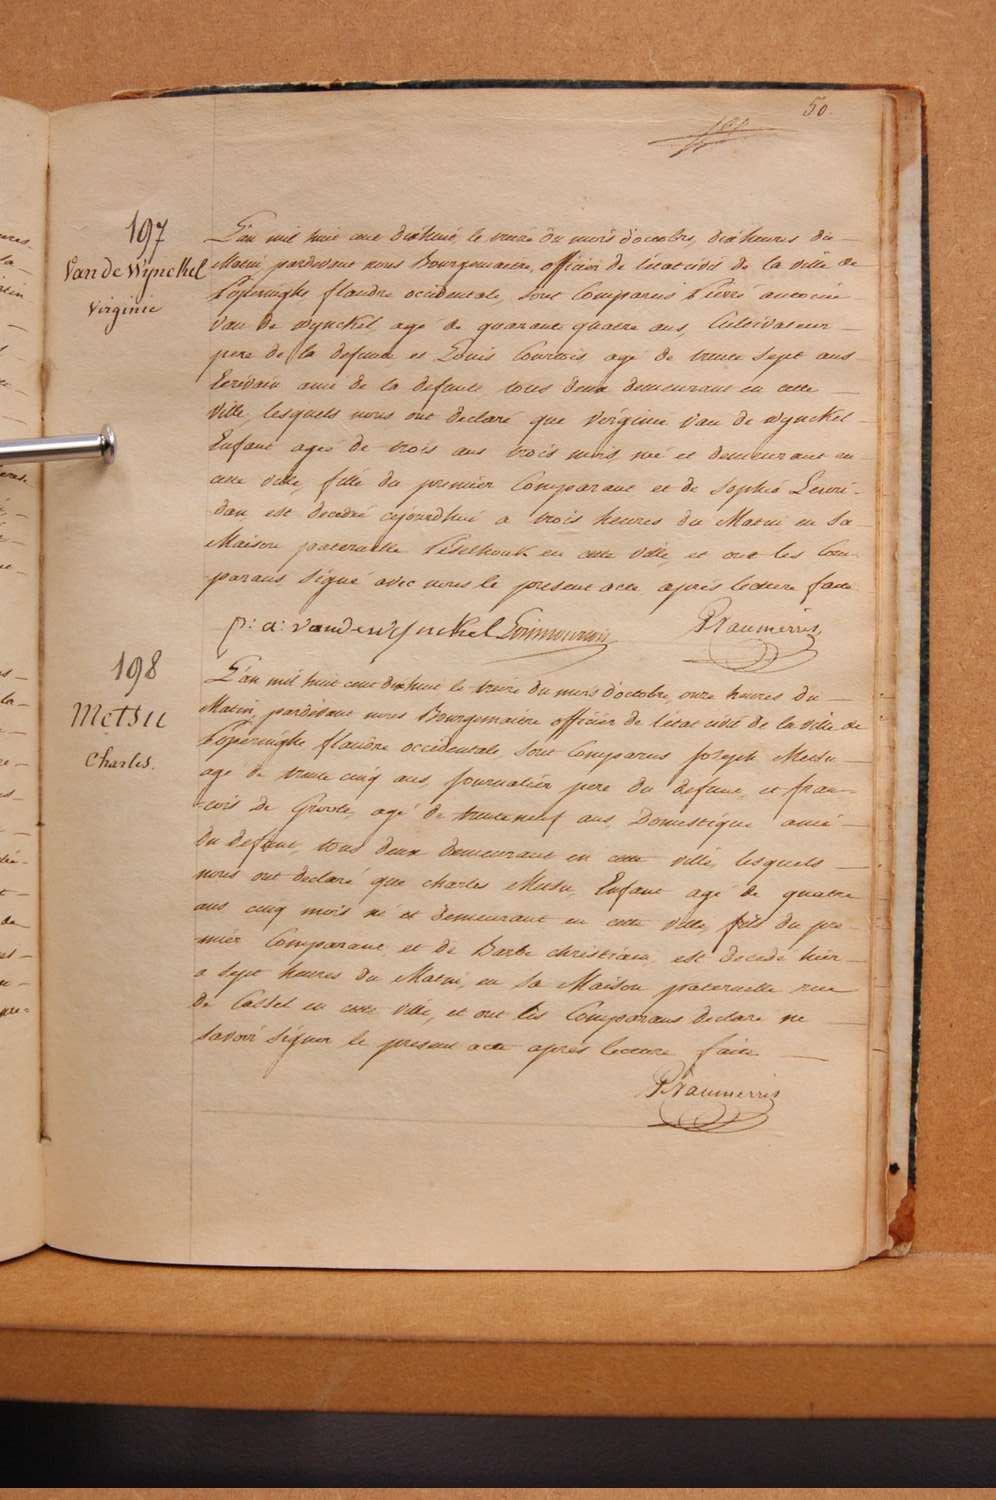 50.
197
Van de Wynckel
Virginie
L'an mil huit cent dixhuit, le treize du mois d'octobre, dix heures du
Matin pardevant nous Bourgemaitre, officier de l'état civil de la ville de
Poperinghe flandre occidentale, sont Comparus Pierre antoine
Van de wynckel agé de quarante quatre ans, Cultivateur
pere de la defunte et Louis Courtois agé de trente sept ans
Ecrivain ami de la defunte tous deux demeurant en cette
Ville, lesquels nous ont declaré que Virginie Van de wynckel
Enfant agée de trois ans trois mois, né et demeurant en
cette Ville, fille du premier Comparant et de Sophie Leuri-
dan, est decedée cejourdhui a trois heures du Matin en Sa
Maison paternelle en cette Ville, et ont les Com-
parans Signé avec nous le present acte après lecture faite
p: a: vandewynckel
198
Metsu
Charles.
L'an mil huit cent dixhuit le treize du mois d'octobre, onze heures du
Matin, pardevant nous Bourgemaitre officier de l'état civil de la ville de
Poperinghe flandre occidentale, sont Comparus Joseph Metsu
agé de trente cinq ans, Journalier pere du defunt, et fran-
cois de Groote, agé de trente neuf ans, Domestique ami
du defunt, tous deux demeurant en cette ville, lesquels
nous ont declaré que charles Metsu, Enfant agé de quatre
ans cinq mois né et demeurant en cette Ville, fils du pre-
mier Comparant, et de Barbe christiaen, est decedé hier
a Sept heures du Matin, en Sa Maison paternelle rue
de Cassel en cette ville, et ont les Comparans declaré ne
Savoir Signer le present acte après lecture faite